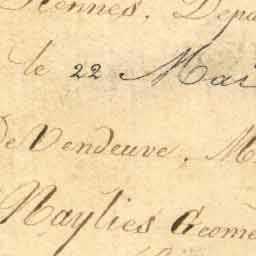 Rennes, Dépa
le 22 Mai
De Vendeuve, M
Naylies Geome